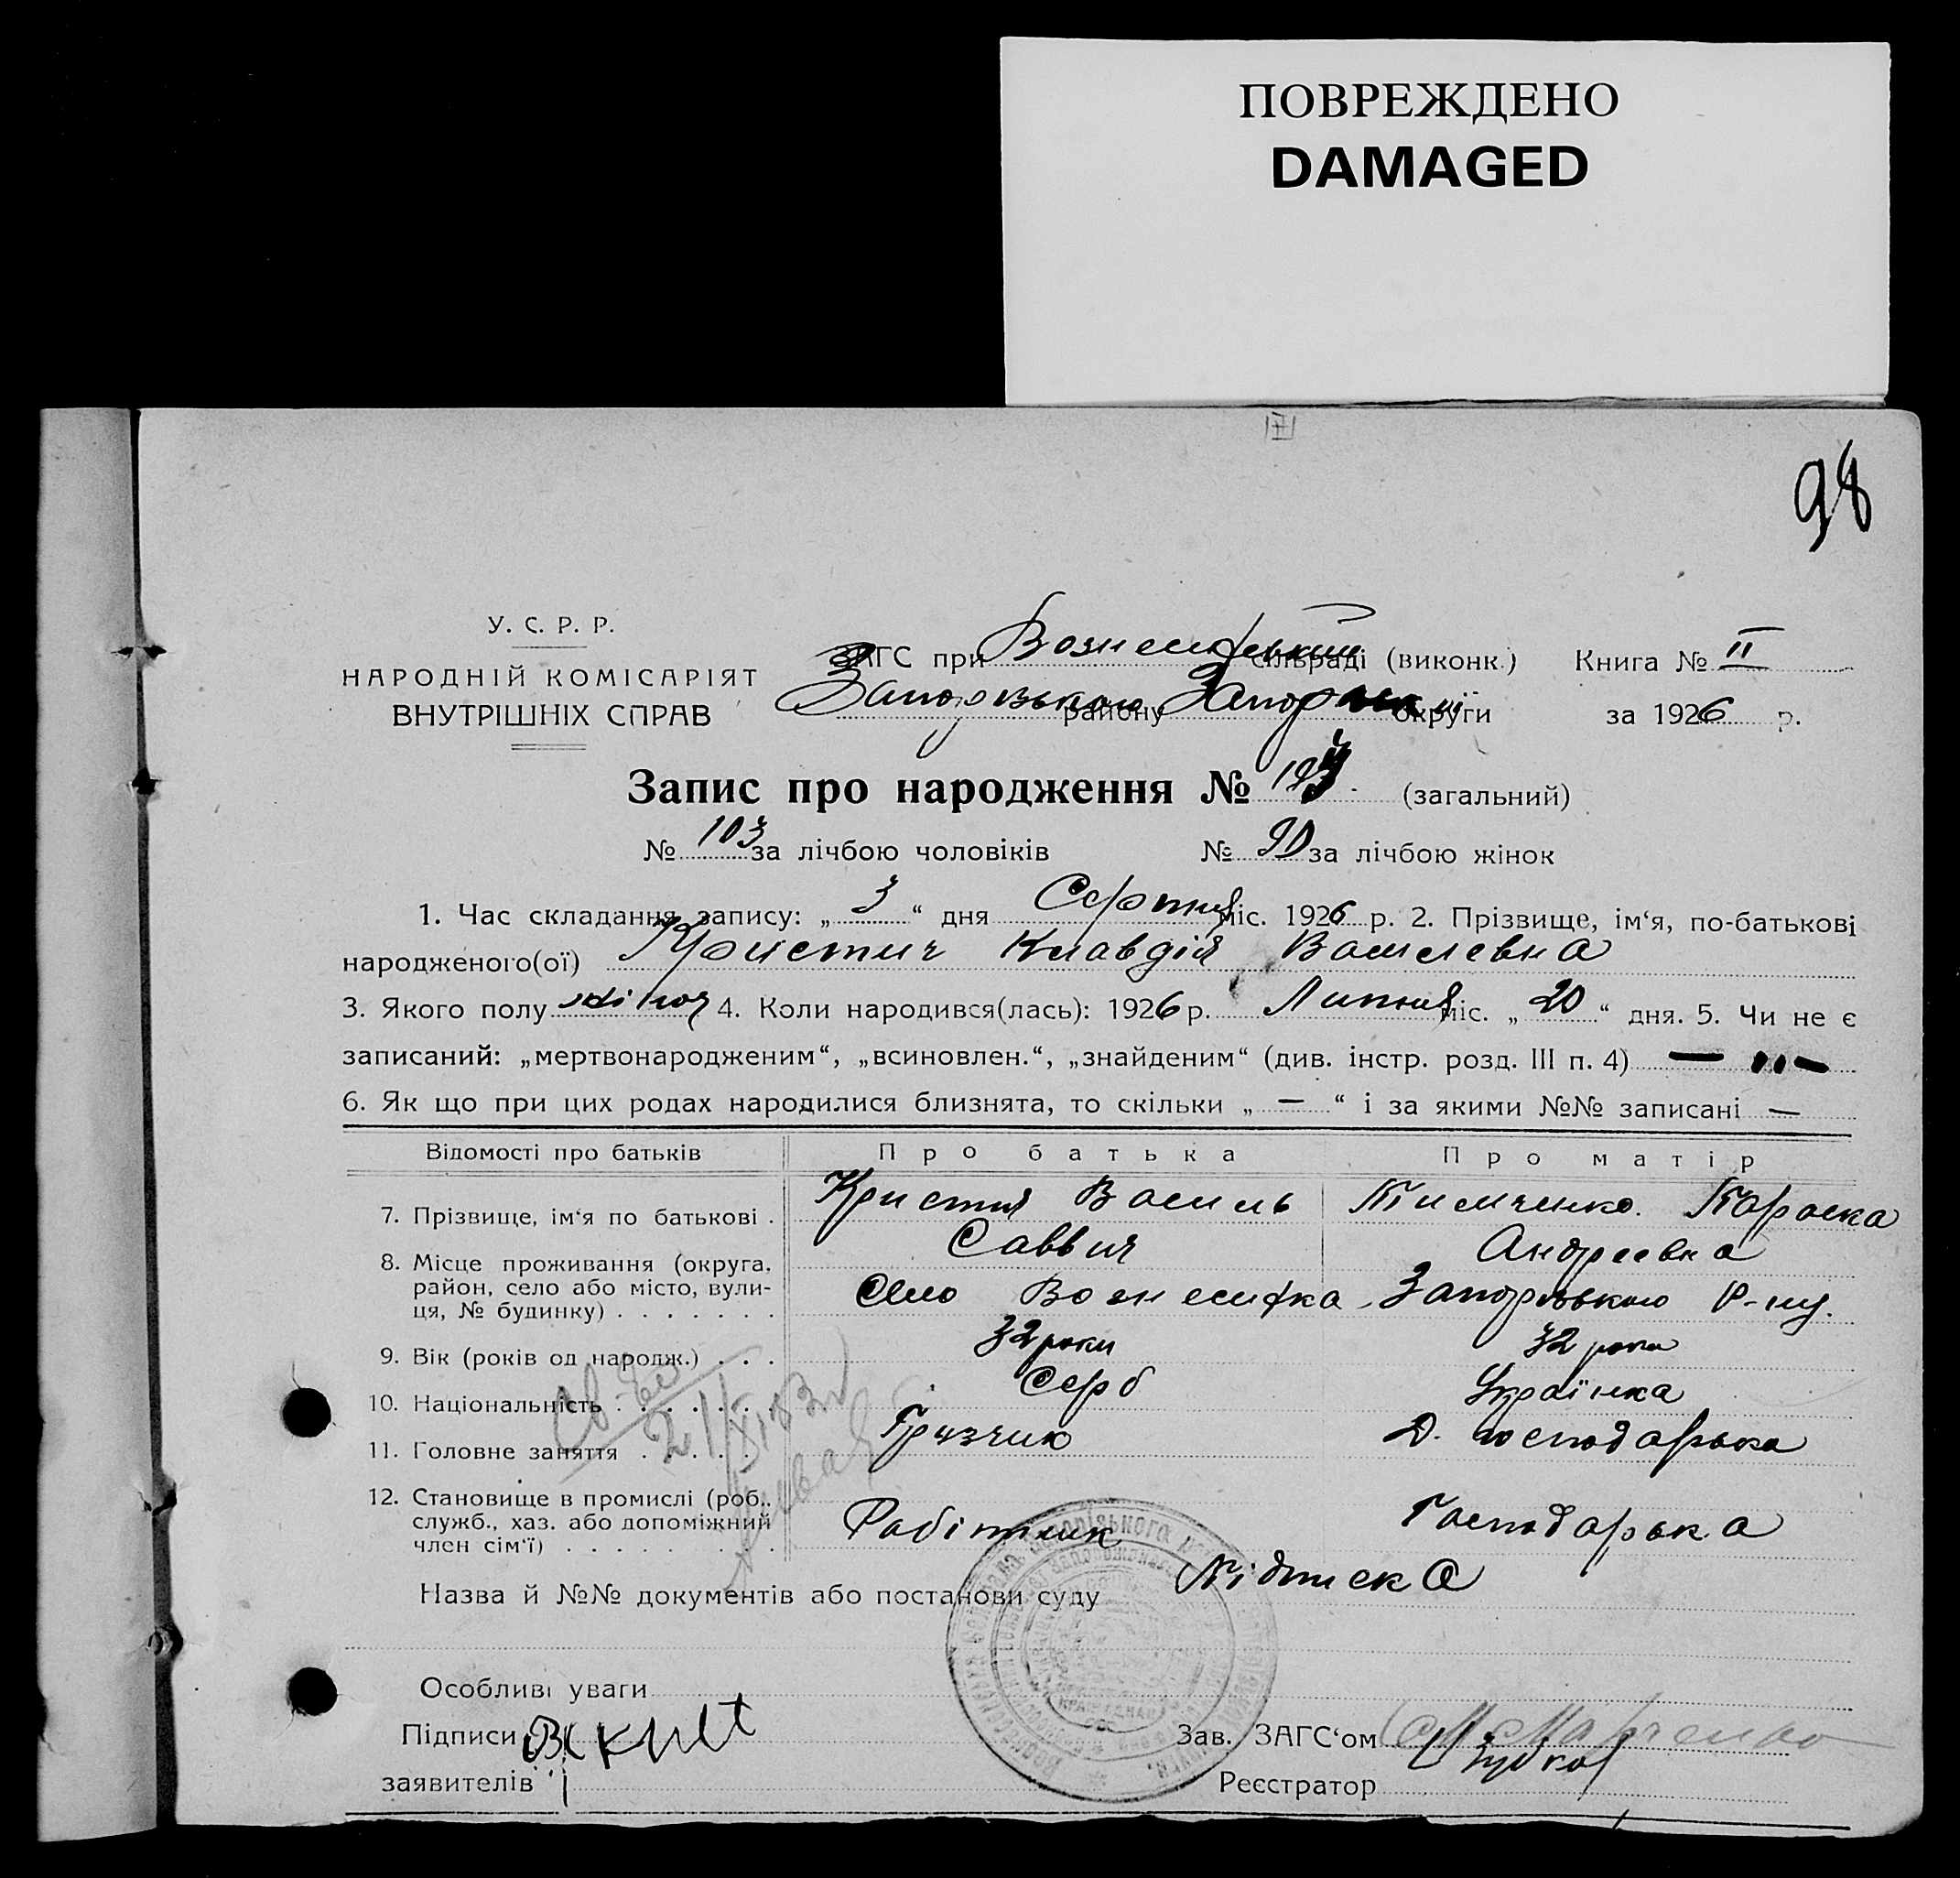 ПОВРЕЖДЕНО
DAMAGED
98
У. С. Р. Р.
НАРОДНІЙ КОМІСАРІЯТ
ВНУТРІШНІХ СПРАВ
ЗАГС при Вознесенський сільраді (виконк.) Книга № II
Запорізького району округи за 1926 р.
Запис про народження № (загальний)
№ 103 за лічбою чоловіків № 90 за лічбою жінок
1. Час складання запису: „ 3 “ дня Серпня міс. 1926 р. 2. Прізвище, ім‘я, по-батькові
народженого(ої) Кристич Клавдія Василевна
3. Якого полу жіноч 4. Коли народився(лась): 1926 р. Липня міс. „ 20 “ дня. 5. Чи не є
записаний: „мертвонародженим“, „всиновлен.“, „знайденим“ (див. інстр. розд. III п. 4) — „ —
6. Як що при цих родах народилися близнята, то скільки „ — “ і за якими №№ записані —
Відомості про батьків Про батька Про матір
7. Прізвище, ім‘я по батькові . Василь Тимченко Параска
Саввич Андреевна
8. Місце проживання (округа, район, село або місто, вулиця, № будинку) . . . . . . . Село Вознесенка Запорізького Р-ну.
9. Вік (років од народж.) . . . 32 роки 32 роки
10. Національність . . . . . . . Серб Українка
11. Головне заняття . . . . . . Грузчик Д. господарька
12. Становище в промислі (роб., служб., хаз. або допоміжний член сім‘ї) . . . . . . . . . Робітник Господарька
Назва й №№ документів або постанови суду Підписка
Особливі уваги
Підписи
заявителів
Зав. ЗАГС‘ом
Реєстратор